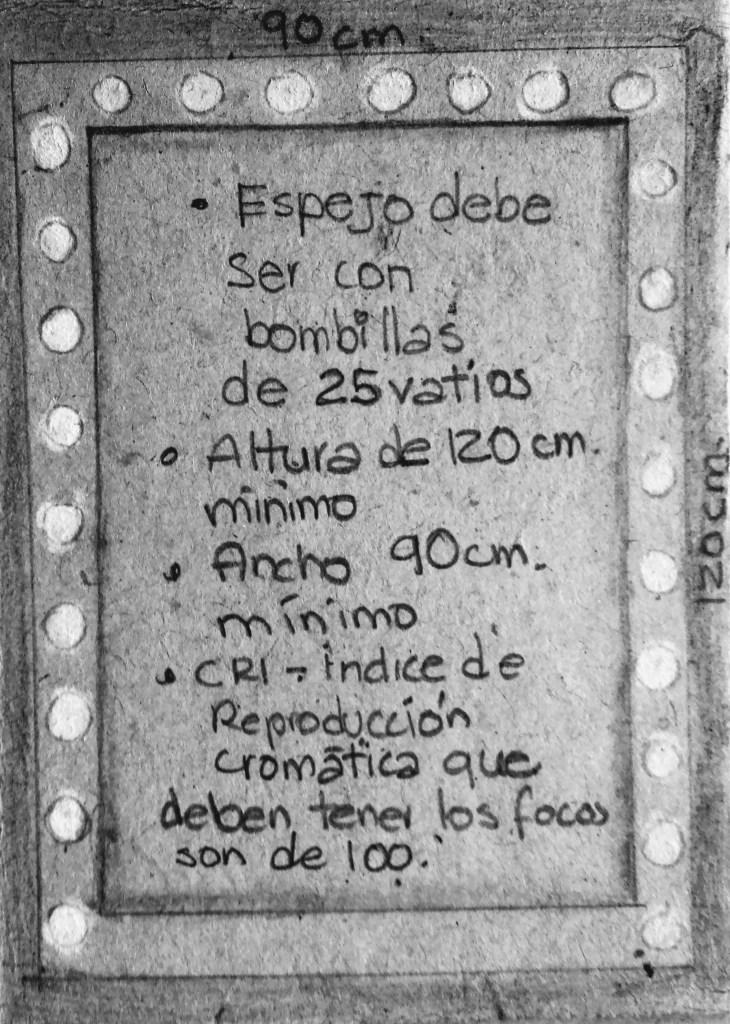 90cm.
• Espejo debe
ser con
bombillas
de 25 vatios
• Altura de 120 cm.
mínimo
• Ancho 90cm.
mínimo
• CRI - índice de
Reproducción
cromática que
deben tener los focos
son de 100.
120cm.